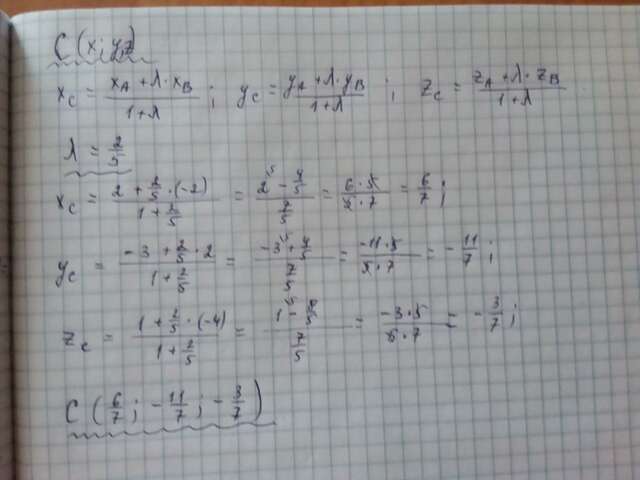 C (x; y; z)
x_C = (x_A + λ · x_B)/(1 + λ) ; y_C = (y_A + λ · y_B)/(1 + λ) ; z_C = (z_A + λ · z_B)/(1 + λ)
λ = 2/5
x_C = (2 + 2/5 · (-2))/(1 + 2/5) = (2^5 - 4/5)/(7/5) = (6 · 5)/(5 · 7) = 6/7 ;
y_C = (-3 + 2/5 · 2)/(1 + 2/5) = (-3^5 + 4/5)/(7/5) = (-11 · 5)/(5 · 7) = - 11/7 ;
z_C = (1 + 2/5 · (-4))/(1 + 2/5) = (1^5 - 8/5)/(7/5) = (-3 · 5)/(5 · 7) = - 3/7 ;
C (6/7 ; - 11/7 ; - 3/7)